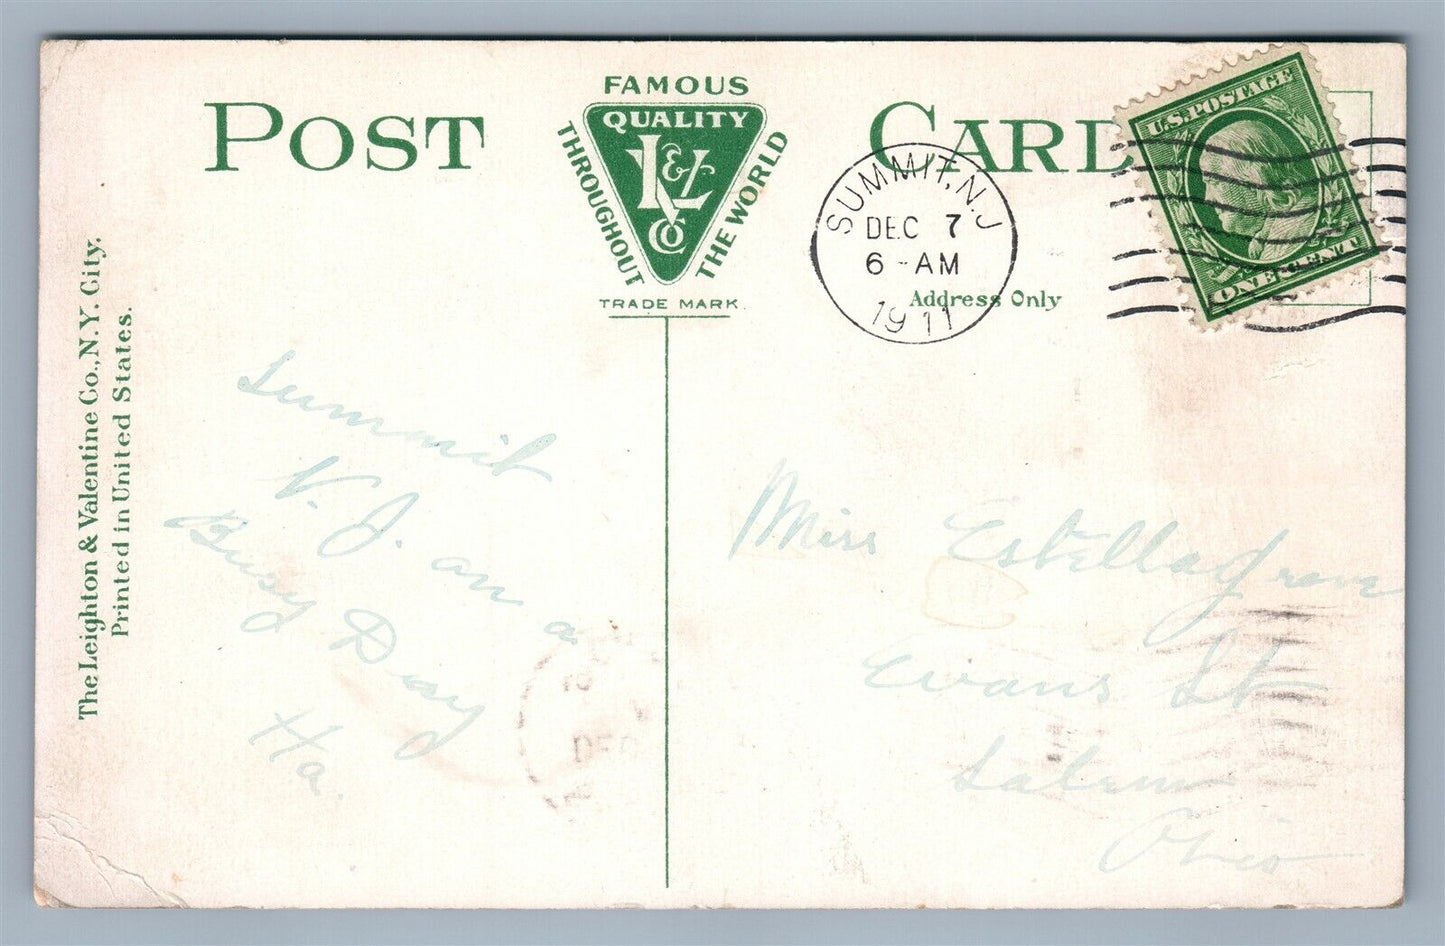 POST CARD
FAMOUS
QUALITY
THROUGHOUT
THE WORLD
L&V
CO
TRADE MARK
SUMMIT, N.J
DEC 7
6-AM
1911
U.S. POSTAGE
ONE CENT
Address Only
The Leighton & Valentine Co., N.Y. City.
Printed in United States.
Summit
N. J. on a
Busy Day
Ha.
Miss Estella
Evans St
Salem
Ohio
DEC